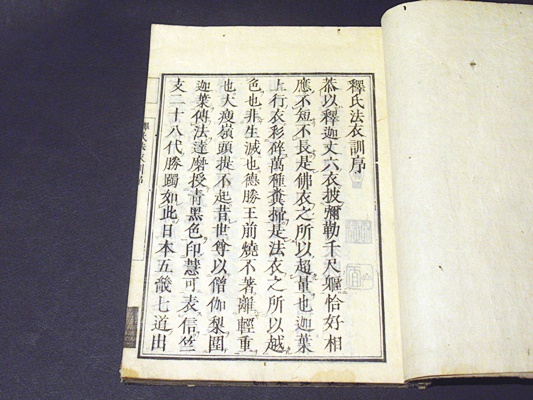 釋氏法衣訓序
恭以釋迦丈六衣披彌勒千尺軀恰好相
應不短不長是佛衣之所以超量也迦葉
上行衣彩碎萬種糞掃是法衣之所以越
色也非生滅也德勝王前燒不著離輕重
也大庾嶺頭提不起昔世尊以僧伽梨圍
迦葉傳法達磨授青黑色印慧可表信竺
支二十八代勝躅如此日本五畿七道由